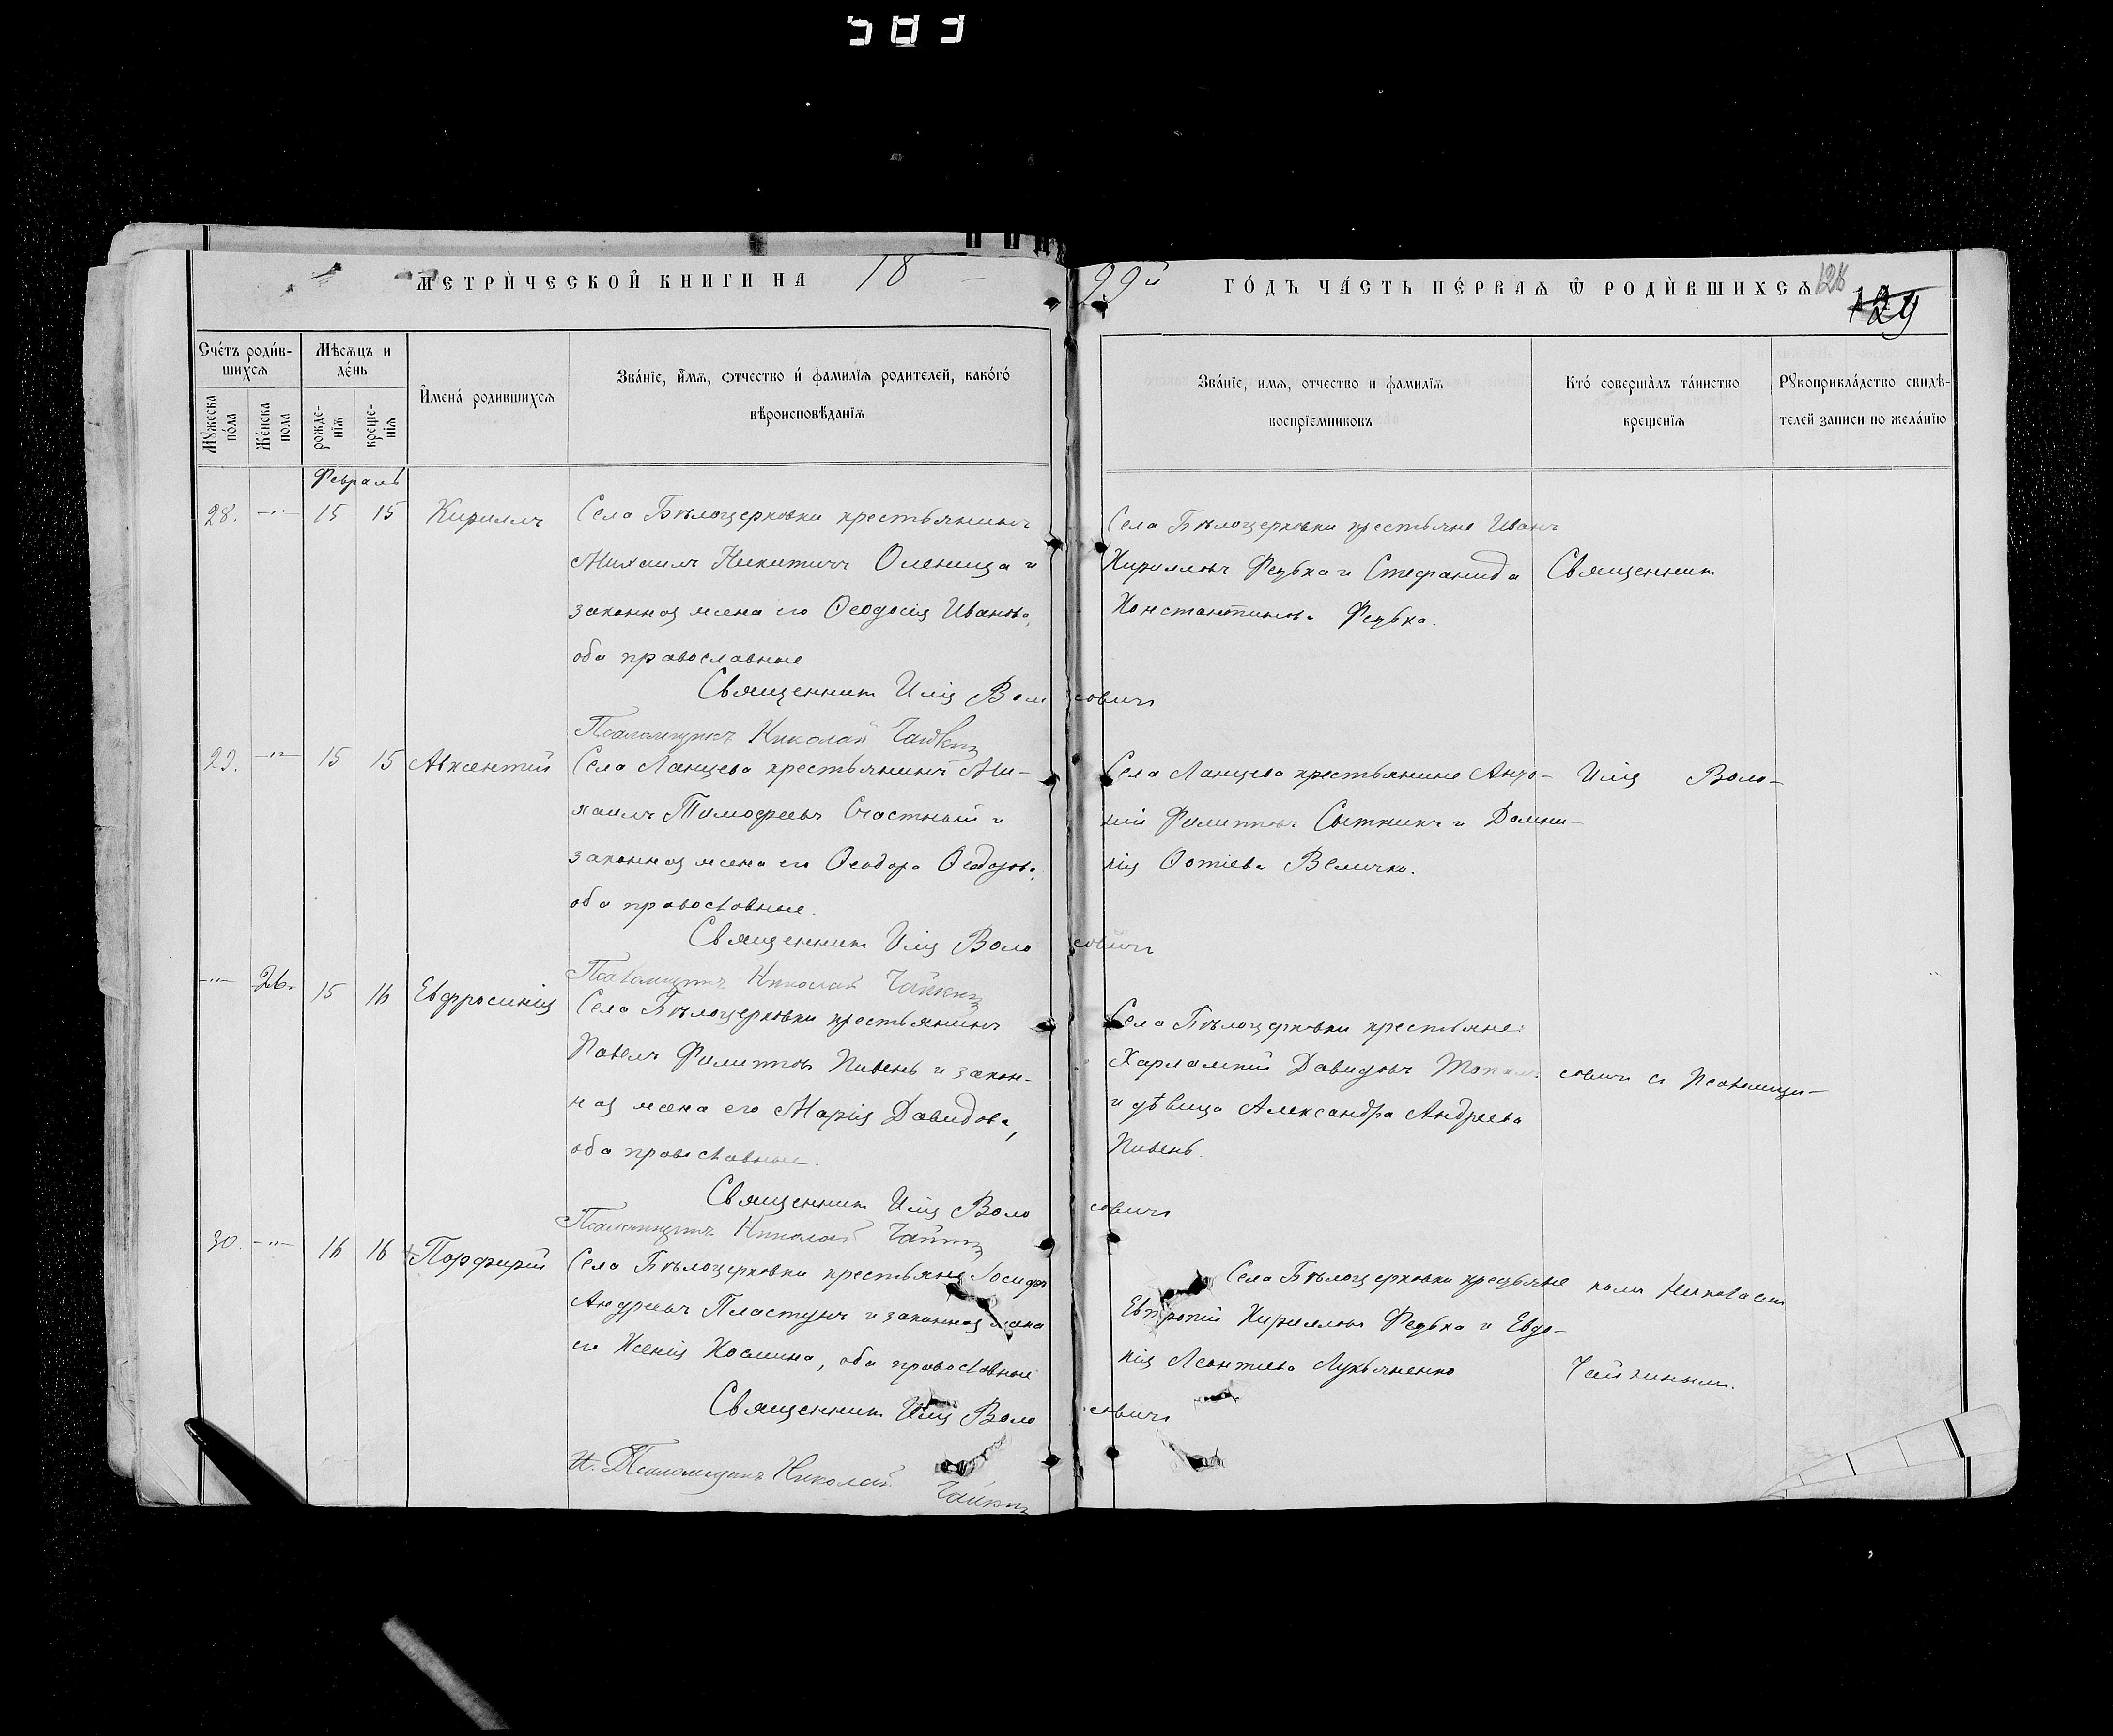 583
МЕТРИ́ЧЕСКОЙ КНИГИ НА 18
99й ГО́ДЪ ЧА́СТЬ ПЕ́РВАѦ Ѿ РОДИ́ВШИХСѦ
128
129
Сче́тъ роди́в-
шихсѧ
Мꙋ́жеска по́ла
Же́нска пола
Мѣ́сѧцъ и де́нь
рожде-
нїѧ
креще-
нїѧ
И҆мена́ родившихсѧ
Зва́нїе, и҆́мѧ, ѻтчество и҆ фамилїѧ родителей, како́гѡ
вѣроисповѣ́данїѧ
Зва́нїе, имѧ, отчество и фамилїѧ
воспрїемниковъ
Кто́ соверша́лъ та́инство
крещенїѧ
Рꙋкоприкла́дство свидѣ́-
телей записи по жела́нїю
Февраль
28. -"- 15 15 Кириллъ
Села Бѣлоцерковки крестьянинъ
Михаилъ Никитинъ Оленица и
законная жена его Ѳеодосія Иванова,
оба православные
Священникъ Илія Воло
совичъ
Псаломщикъ Николай Чайкинъ
Села Бѣлоцерковки крестьяне Иванъ
Кирилловъ Редька и Стефанида
Константинова Редька.
Священник
29. -"- 15 15 Авксентій
Села Ланцева крестьянинъ Ми-
хаилъ Тимофеевъ Счастный и
законная жена его Ѳеодора Ѳеодорова,
оба православные.
Священникъ Илія Воло
совичъ
Псаломщикъ Николай Чайкинъ
Села Ланцева крестьянине
Филипповъ Сытникъ и Домни-
кія Фотіева Величко.
Илія Воло-
-"- 26. 15 16 Евфросинія
Села Бѣлоцерковки крестьянинъ
Павелъ Филипповъ Пивень и закон-
ная жена его Марія Давидова,
оба православные.
Священникъ Илія Воло
совичъ
Псаломщикъ Николай Чайкинъ
Села Бѣлоцерковки крестьяне:
Харлампій Давидовъ
и дѣвица Александра Андреева
Пивень.
совичъ съ Псаломщи-
30. -"- 16 16 Порфирій
Села Бѣлоцерковки крестьяне Іосифъ
Андреевъ Пластунъ и законная жена
его Ксенія Космина, оба православные
Священникъ Илія Воло
совичъ
Псаломщикъ Николай
Чайкинъ
Села Бѣлоцерковки крестьяне
Евтропій Кирилловъ Редька и Евдо-
кія Леонтиева Лукьяненко
комъ Николаемъ
Чайкинымъ.